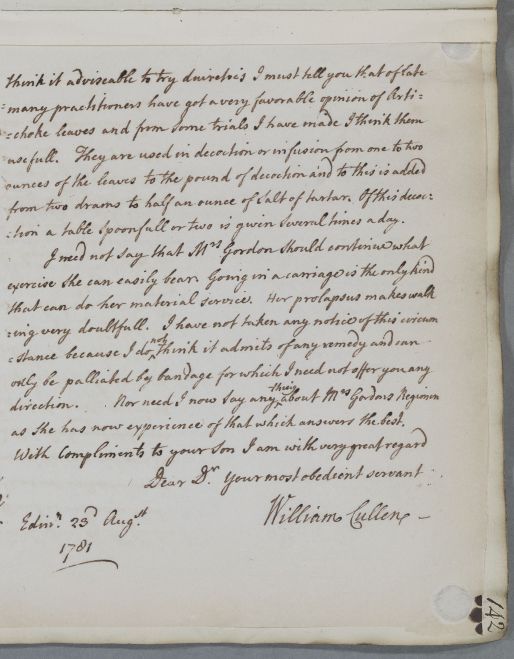 think it adviseable to try diuretics I must tell you that of late
many practitioners have got a very favorable opinion of Arti=
=choke leaves and from some trials I have made I think them
usefull. They are used in decoction or infusion from one to two
ounces of the leaves to the pound of decoction and to this is added
from two drams to half an ounce of salt of tartar. Of this decoc=
:tion a table spoonfull or two is given several times a day.
I need not say that Mrs Gordon should continue what
exercise she can easily bear. Going in a carriage is the only kind
that can do her material service. Her prolapsus makes walk
=ing very doubtfull. I have not taken any notice of this circum
=stance because I do not think it admits of any remedy and can
only be palliated by bandage for which I need not offer you any
direction. Nor need I now say any thing about Mrs Gordons Regimen
as she has now experience of that which answers the best.
With Compliments to your Son I am with very great regard
Dear Dr. your most obedient servant
William Cullen
Edinr. 23d Augst.
1781
142